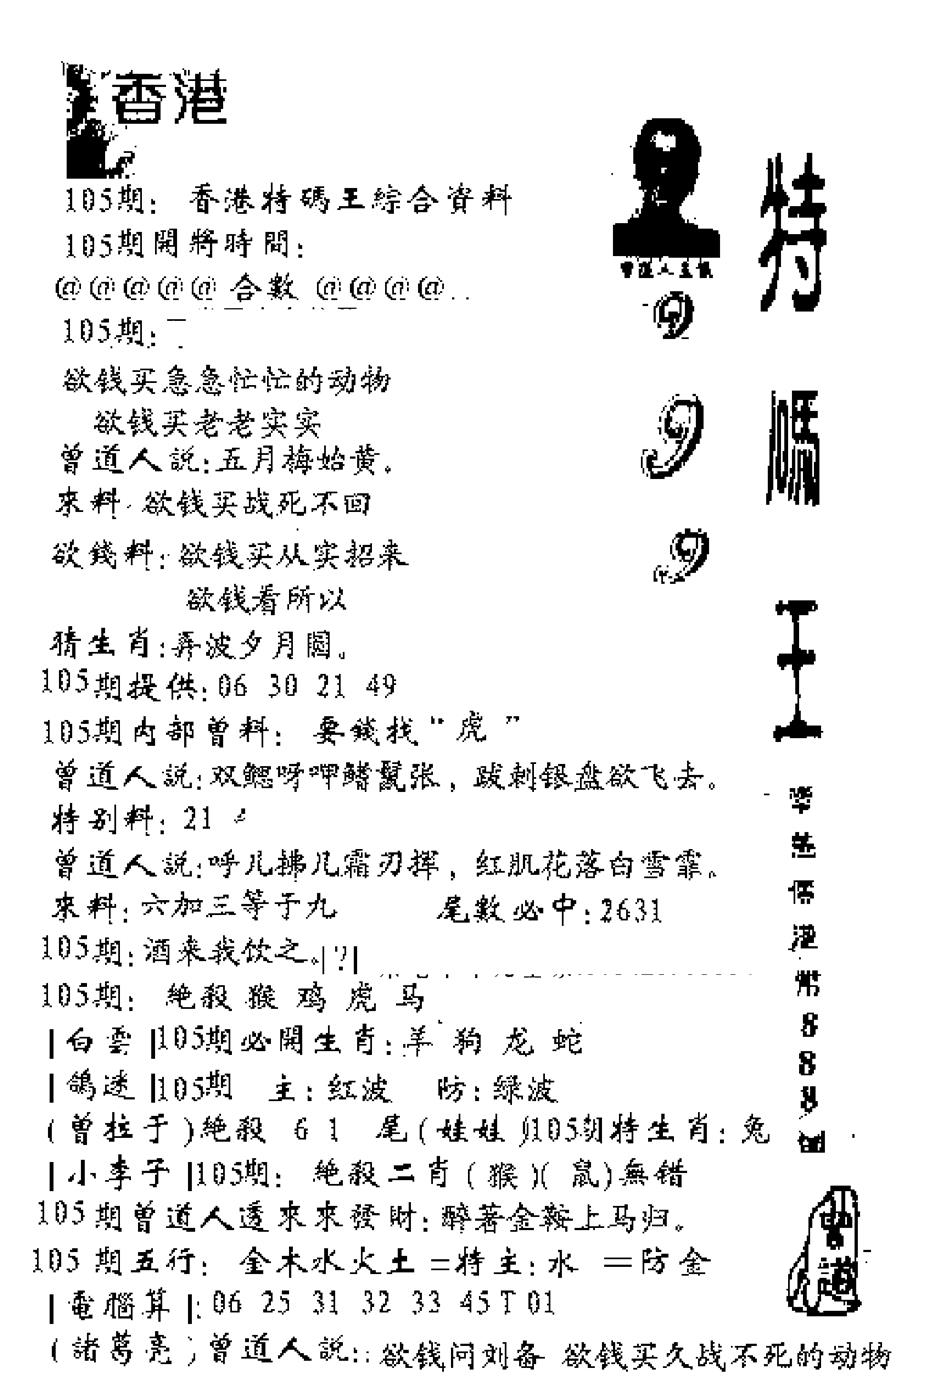 香港
105期: 香港特碼王綜合資料
105期開將時間:
@@@@@ 合數 @@@@..
105期:
欲钱买急急忙忙的动物
欲钱买老老实实
曾道人説:五月梅始黄。
來料: 欲钱买战死不回
欲錢料: 欲钱买从实招来
欲钱看所以
猜生肖:弄波夕月圓。
105期提供:06 30 21 49
105期内部曾料: 要錢找"虎"
曾道人説:双鳃呀呷鳍鬣张, 跋剌银盘欲飞去。
特别料: 21
曾道人説:呼儿拂几霜刃挥, 红肌花落白雪霏。
來料: 六加三等于九 尾數必中:2631
105期:酒来我饮之。|?|
105期: 絶殺 猴 鸡 虎 马
|白雲|105期必開生肖:羊 狗 龙 蛇
|鴿迷|105期 主:红波 防:绿波
(曾拉于)絶殺 6 1 尾(娃娃)105期特生肖:兔
|小李子|105期: 絶殺二肖(猴)(鼠)無错
105期曾道人透來來發財:醉著金鞍上马归。
105期五行: 金木水火土=特主:水 =防金
|電腦算|:06 25 31 32 33 45T01
(諸葛亮)曾道人説::欲钱问刘备 欲钱买久战不死的动物
曾道人主說
9
9
9
特
碼
王
888
曾道